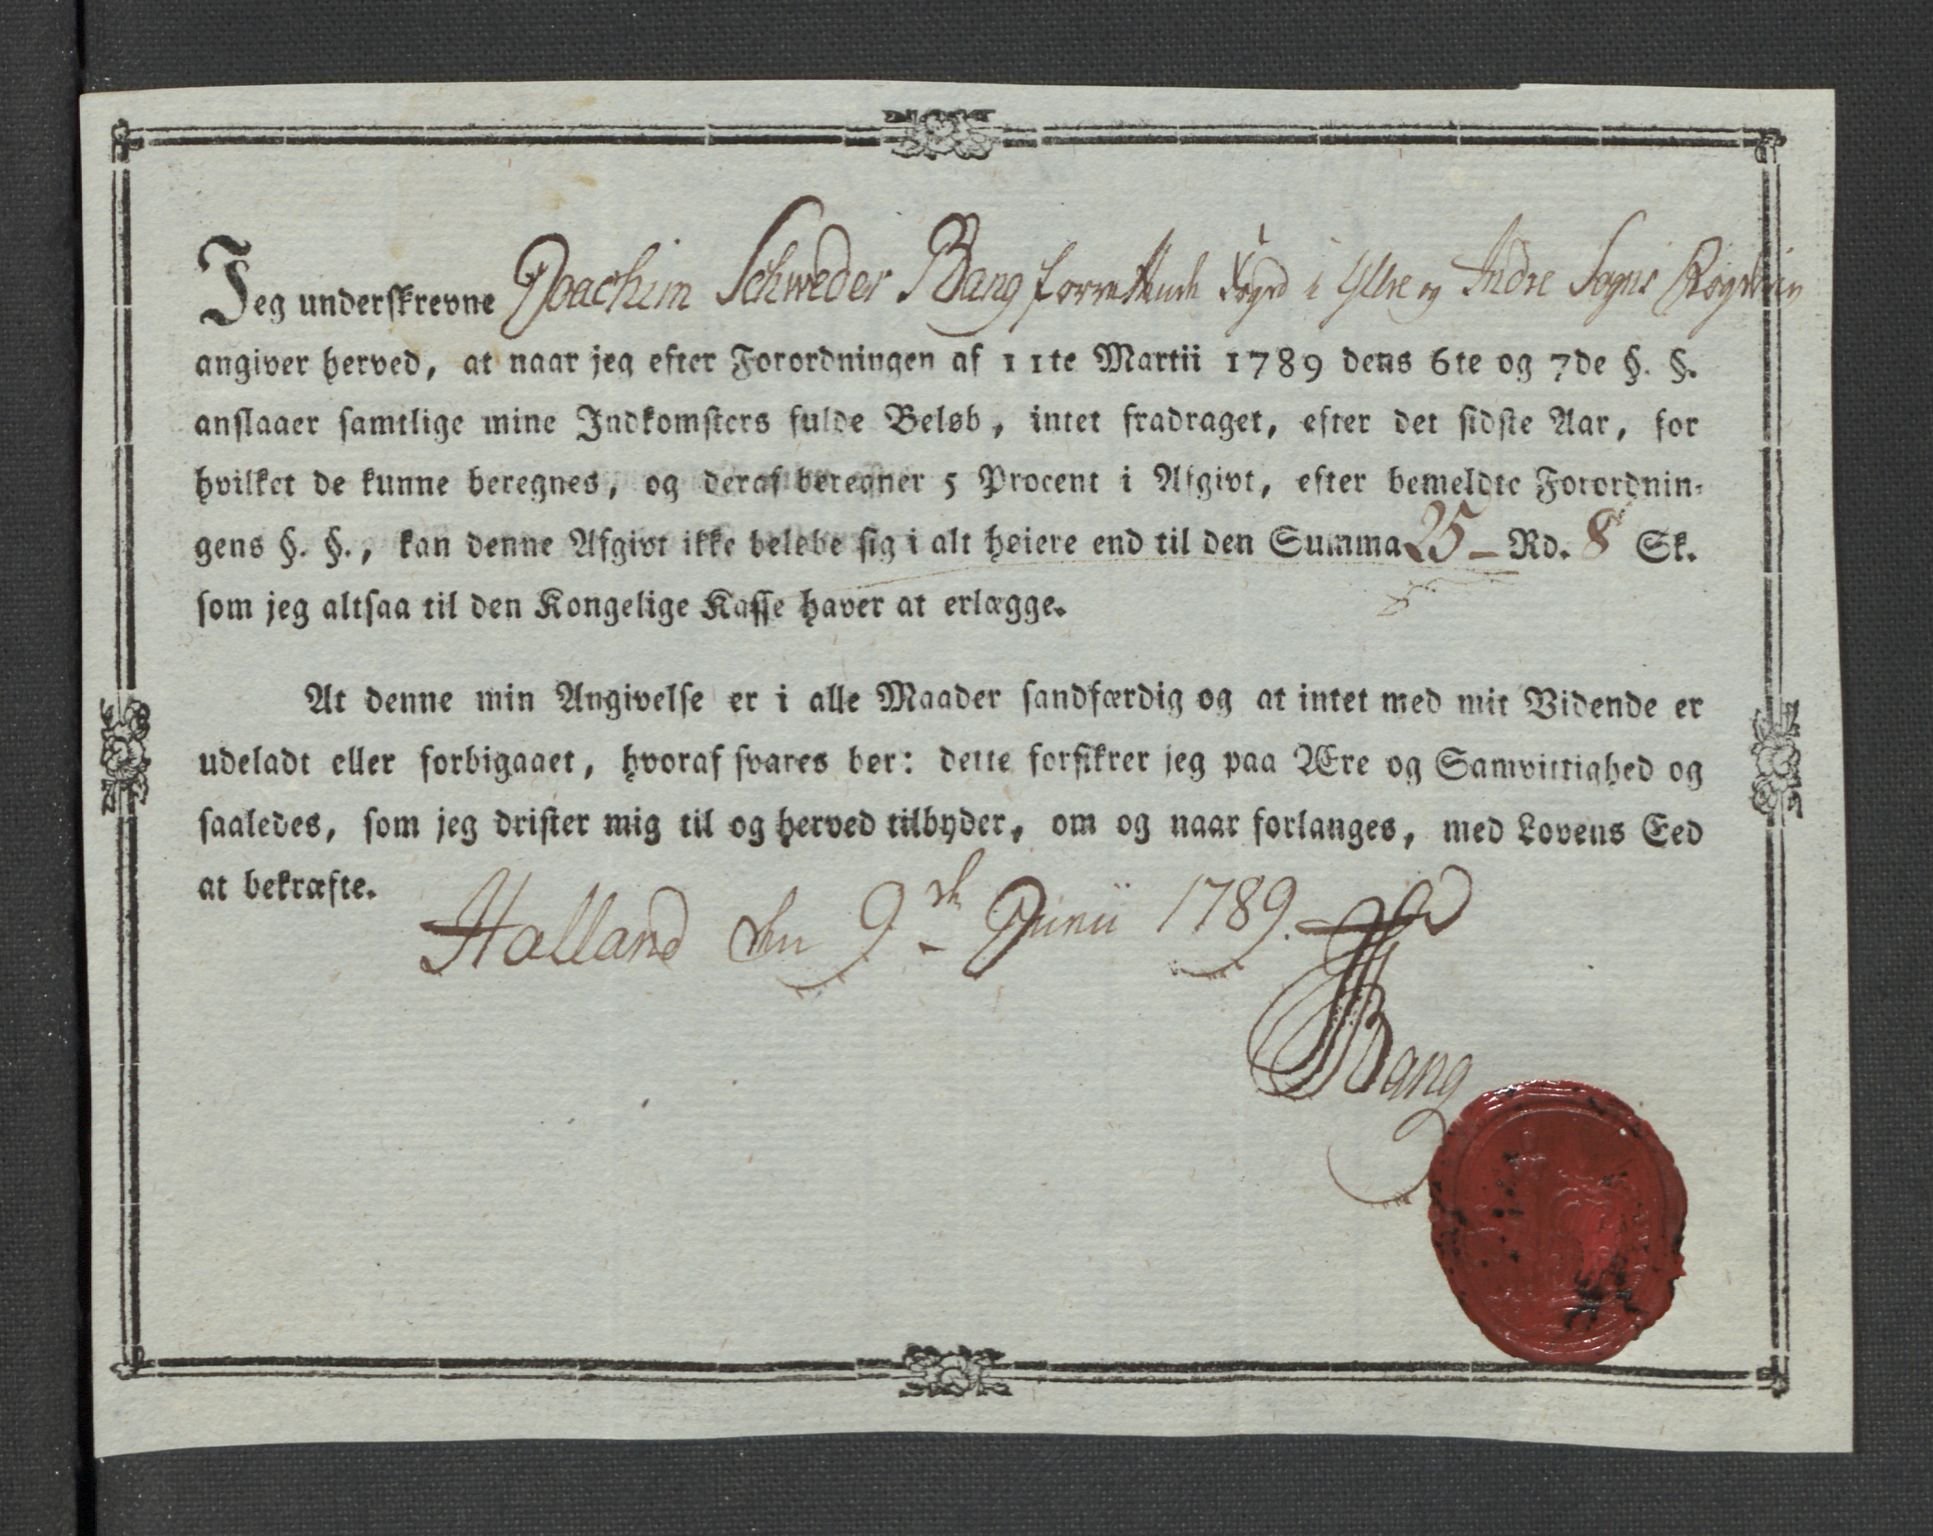 Jeg underskrevne Joachim Schweder Bang forrettende Fogd i Yttre og Indre Sogns Fogderie
angiver herved, at naar jeg efter Forordningen af 11te Martii 1789 dens 6te og 7de §. §.
anslaaer samtlige mine Indkomsters fulde Beløb, intet fradraget, efter det sidste Aar, for
hvilket de kunne beregnes, og deraf beregner 5 Procent i Afgivt, efter bemeldte Forordnin-
gens §. §., kan denne Afgivt ikke beløbe sig i alt høiere end til den Summa 25 — Rd. 8 Sk.
som jeg altsaa til den Kongelige Kasse haver at erlægge.
At denne min Angivelse er i alle Maader sandfærdig og at intet med mit Vidende er
udeladt eller forbigaaet, hvoraf svares bør: dette forsikrer jeg paa Ære og Samvittighed og
saaledes, som jeg drister mig til og herved tilbyder, om og naar forlanges, med Lovens Eed
at bekræfte.
Halland den 9de Junii 1789.
Bang